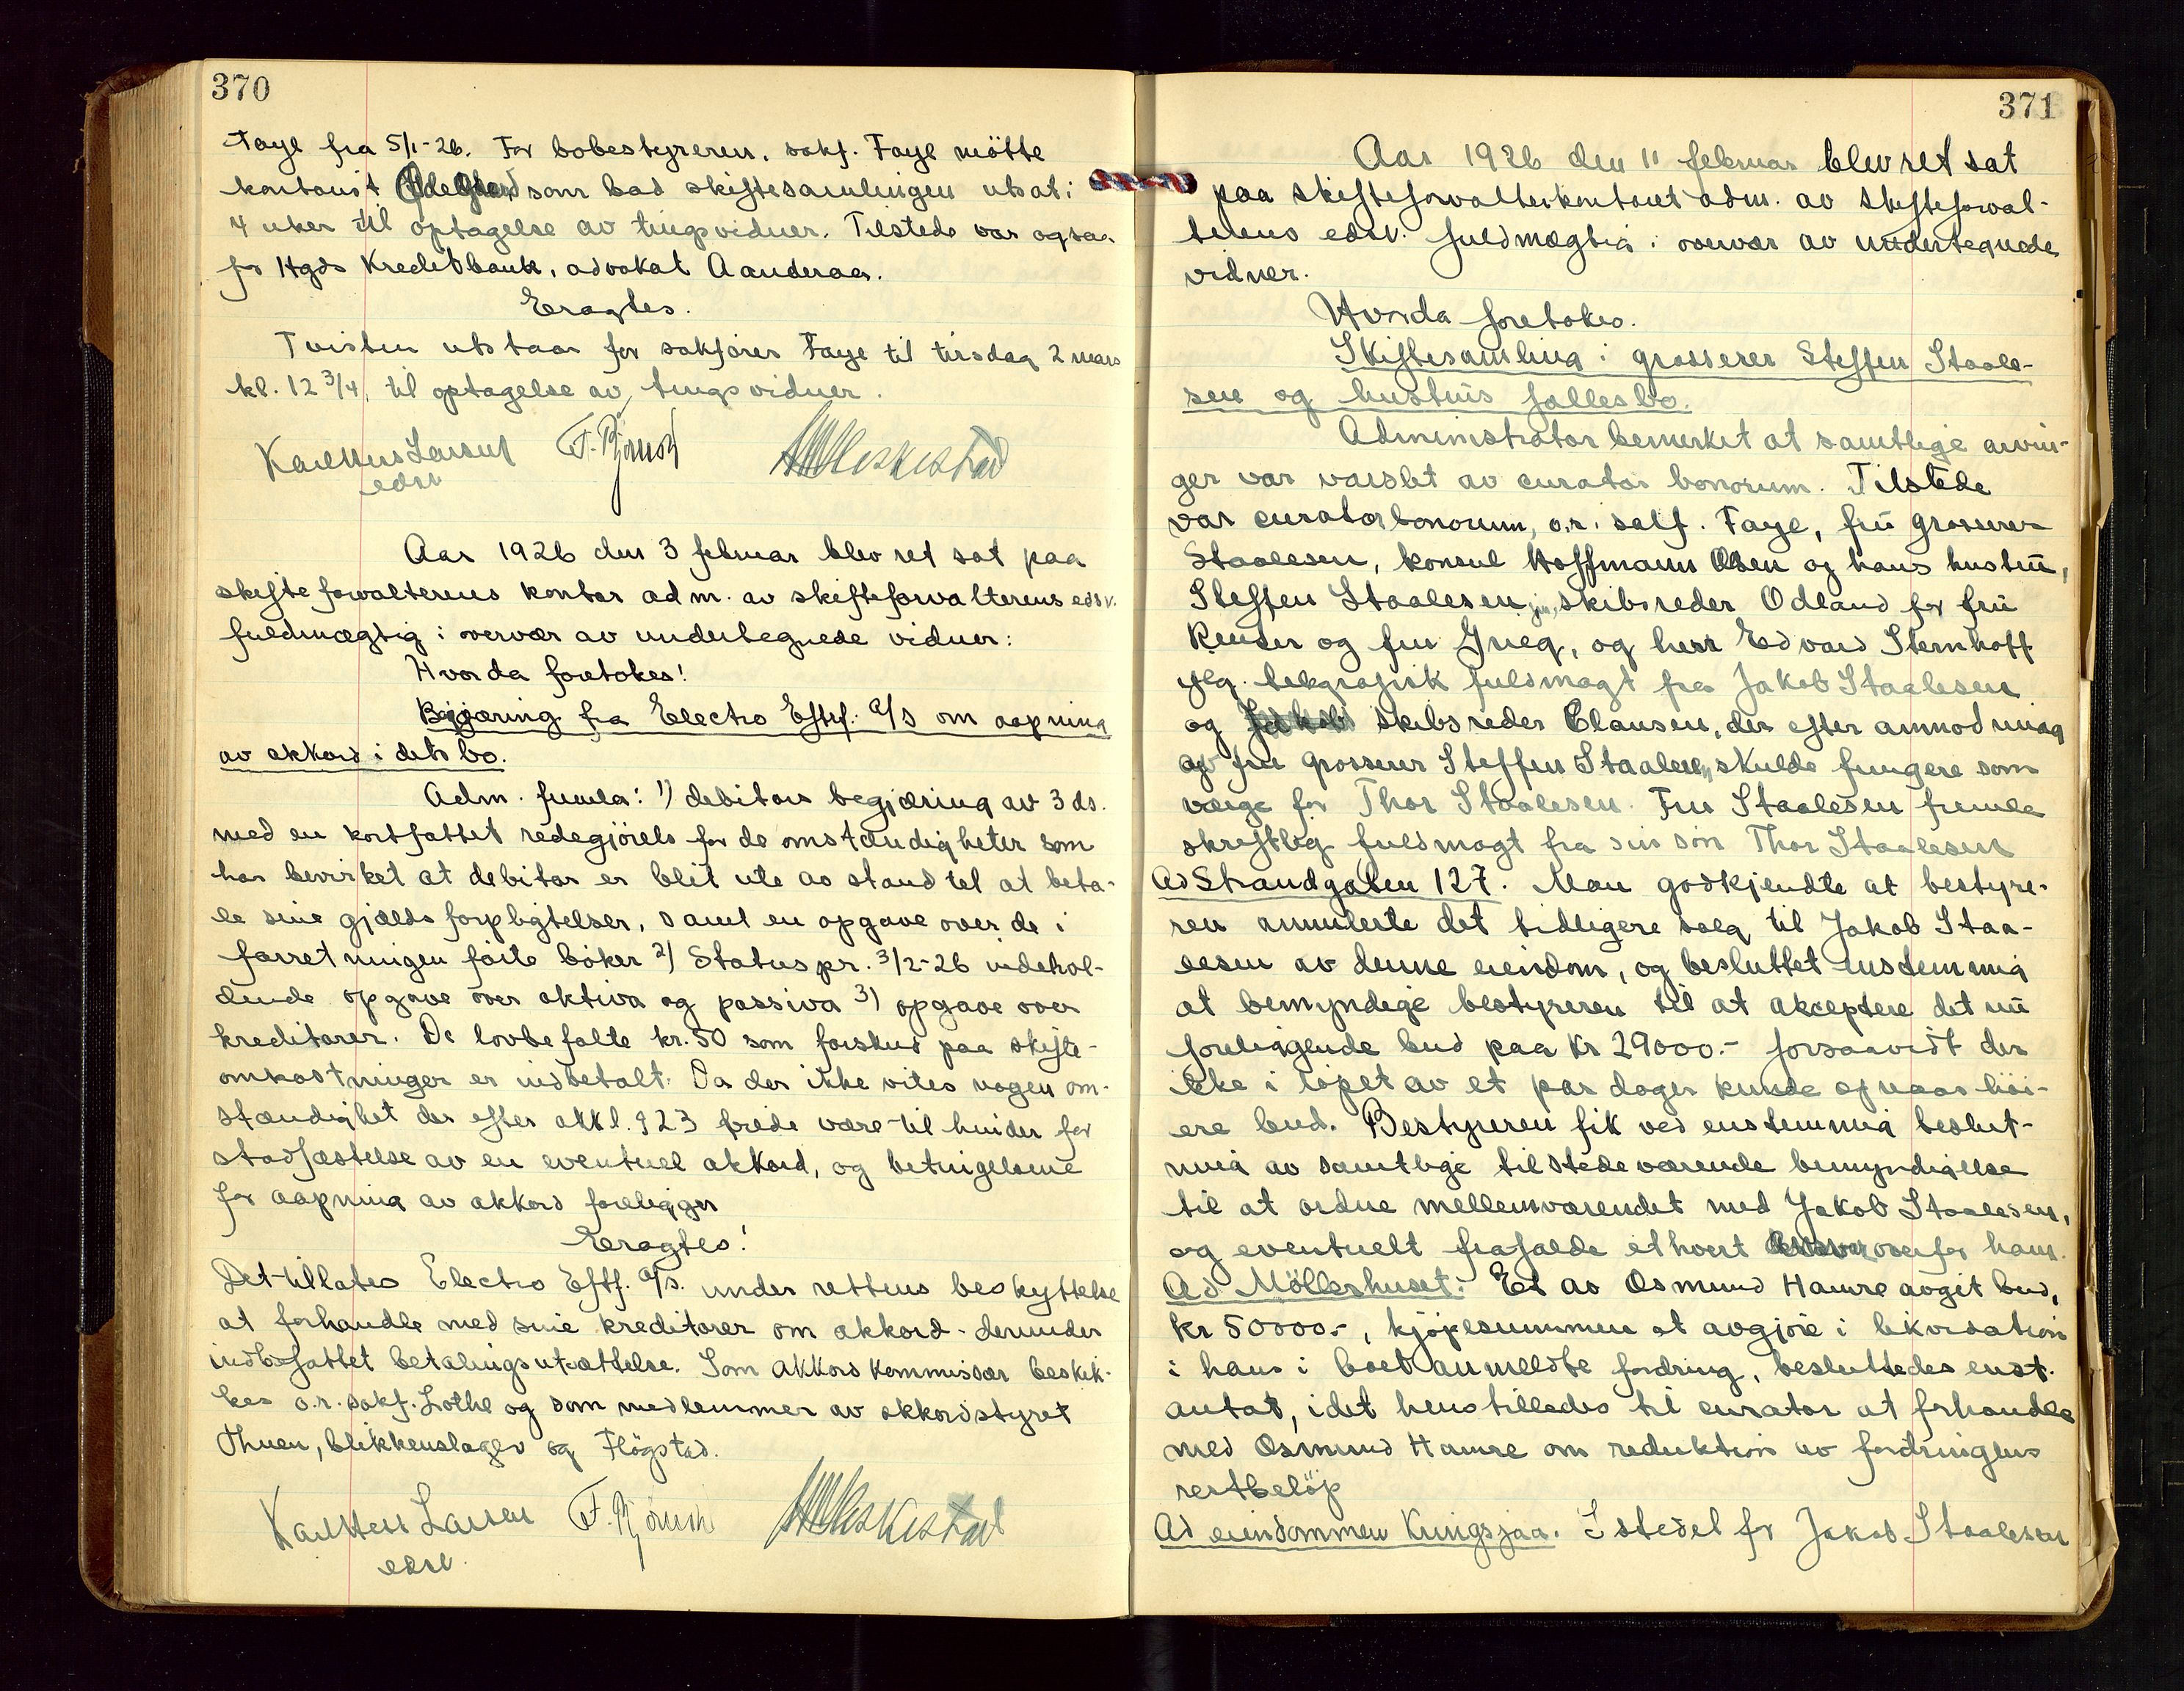 370
Faye fra 5/1-26. For bobestyreren, sakf. Faye mötte
kontorist som bad skiftesamlingen utsat i
4 uker til optagelse av tingsvidner. Tilstede var ogsaa
for Hgds Kreditbank, advokat Aanderaa.
Eragtes.
Tvisten utstaar for sakförer Faye til tirsdag 2 mars
kl. 12 3/4, til optagelse av tingsvidner.
Karl Larsen F. Bjørnsen
edsv
Aar 1926 den 3 februar blev ret sat paa
skifteforvalterens kontor adm. av skifteforvalterens edsv.
fuldmægtig i overvær av undertegnede vidner:
Hvorda foretokes!
Begjæring fra Electro Eftf. a/s om aapning
av akkord i dets bo.
Adm. fremla: 1) debitors begjæring av 3 ds.
med en kortfattet redegjörels for de omstændigheter som
har bevirket at debitor er blit ute av stand til at beta-
le sine gjældsforpligtelser, samt en opgave over de i
forretningen förte böker 2) Status pr. 3/2-26 indehol-
dende opgave over aktiva og passiva 3) opgave over
kreditorer. De lovbefalte kr. 50 som forskud paa skifte-
omkostninger er indbetalt. Da der ikke vites nogen om-
stændighet der efter akkl. § 23 tredie være til hinder for
stadfæstelse av en eventuel akkord, og betingelsene
for aapning av akkord foreligger
Eragtes!
Det tillates Electro Eftf. a/s. under rettens beskyttelse
at forhandle med sine kreditorer om akkord - derunder
indbefattet betalingsutsættelse. Som akkordkommissær beskik-
kes o.r. sakf. Lothe og som medlemmer av akkordstyret
Thuen, blikkenslager og Flögstad.
Karl Larsen F. Bjørnsen
edsv.
371
Aar 1926 den 11 februar blev ret sat
paa skifteforvalterkontoret adm. av skifteforval-
terens edsv. fuldmægtig i overvær av undertegnede
vidner.
Hvorda foretokes.
Skiftesamling i grosserer Steffen Staale-
sen og hustrus fællesbo.
Administrator bemerket at samtlige arvin-
ger var varslet av curator bonorum. Tilstede
var curator bonorum, o.r. sakf. Faye, frü grosserer
Staalesen, konsul Hoffmann Olsen og hans hustrü,
Steffen Staalesen jun, skibsreder Odland for frü
Reuser og fru Grieg, og herr Edvard Sternhoff
iflg. telegrafisk fuldmagt fra Jakob Staalesen
og skibsreder Clausen, der efter anmodning
av frü grosserer Steffen Staalesen, skulde fungere som
værge for Thor Staalesen. Fru Staalesen fremla
skriftlig fuldmagt fra sin sön Thor Staalesen
Ad Strandgaten 127. Man godkjendte at bestyre-
ren annulerte det tidligere salg til Jakob Staa-
lesen av denne eiendom, og besluttet enstemmig
at bemyndige bestyreren til at akceptere det nü
foreliggende bud paa kr 29000.- forsaavidt der
ikke i löpet av et par dager kunde opnaas höi-
ere bud. Bestyreren fik ved enstemmig beslut-
ning av samtlige tilstedeværende bemyndigelse
til at ordne mellemværendet med Jakob Staalesen,
og eventuelt frafalde ethvert ansvar overfor ham.
Ad Möllerhuset. Et av Osmund Hamre avgit bud,
kr 50000.-, kjöpesummen at avgjöre i likvidation
i hans i boet anmeldte fordring, besluttedes enst.
antat, idet henstilledes til curator at forhandle
med Osmund Hamre om reduktion av fordringens
restbelöp
Ad eiendommen Kringsjaa. I stedet for Jakob Staalesen